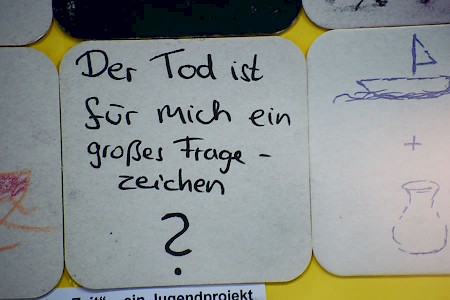 Der Tod ist
für mich ein
großes Frage-
zeichen
?
+
ein Jugendprojekt